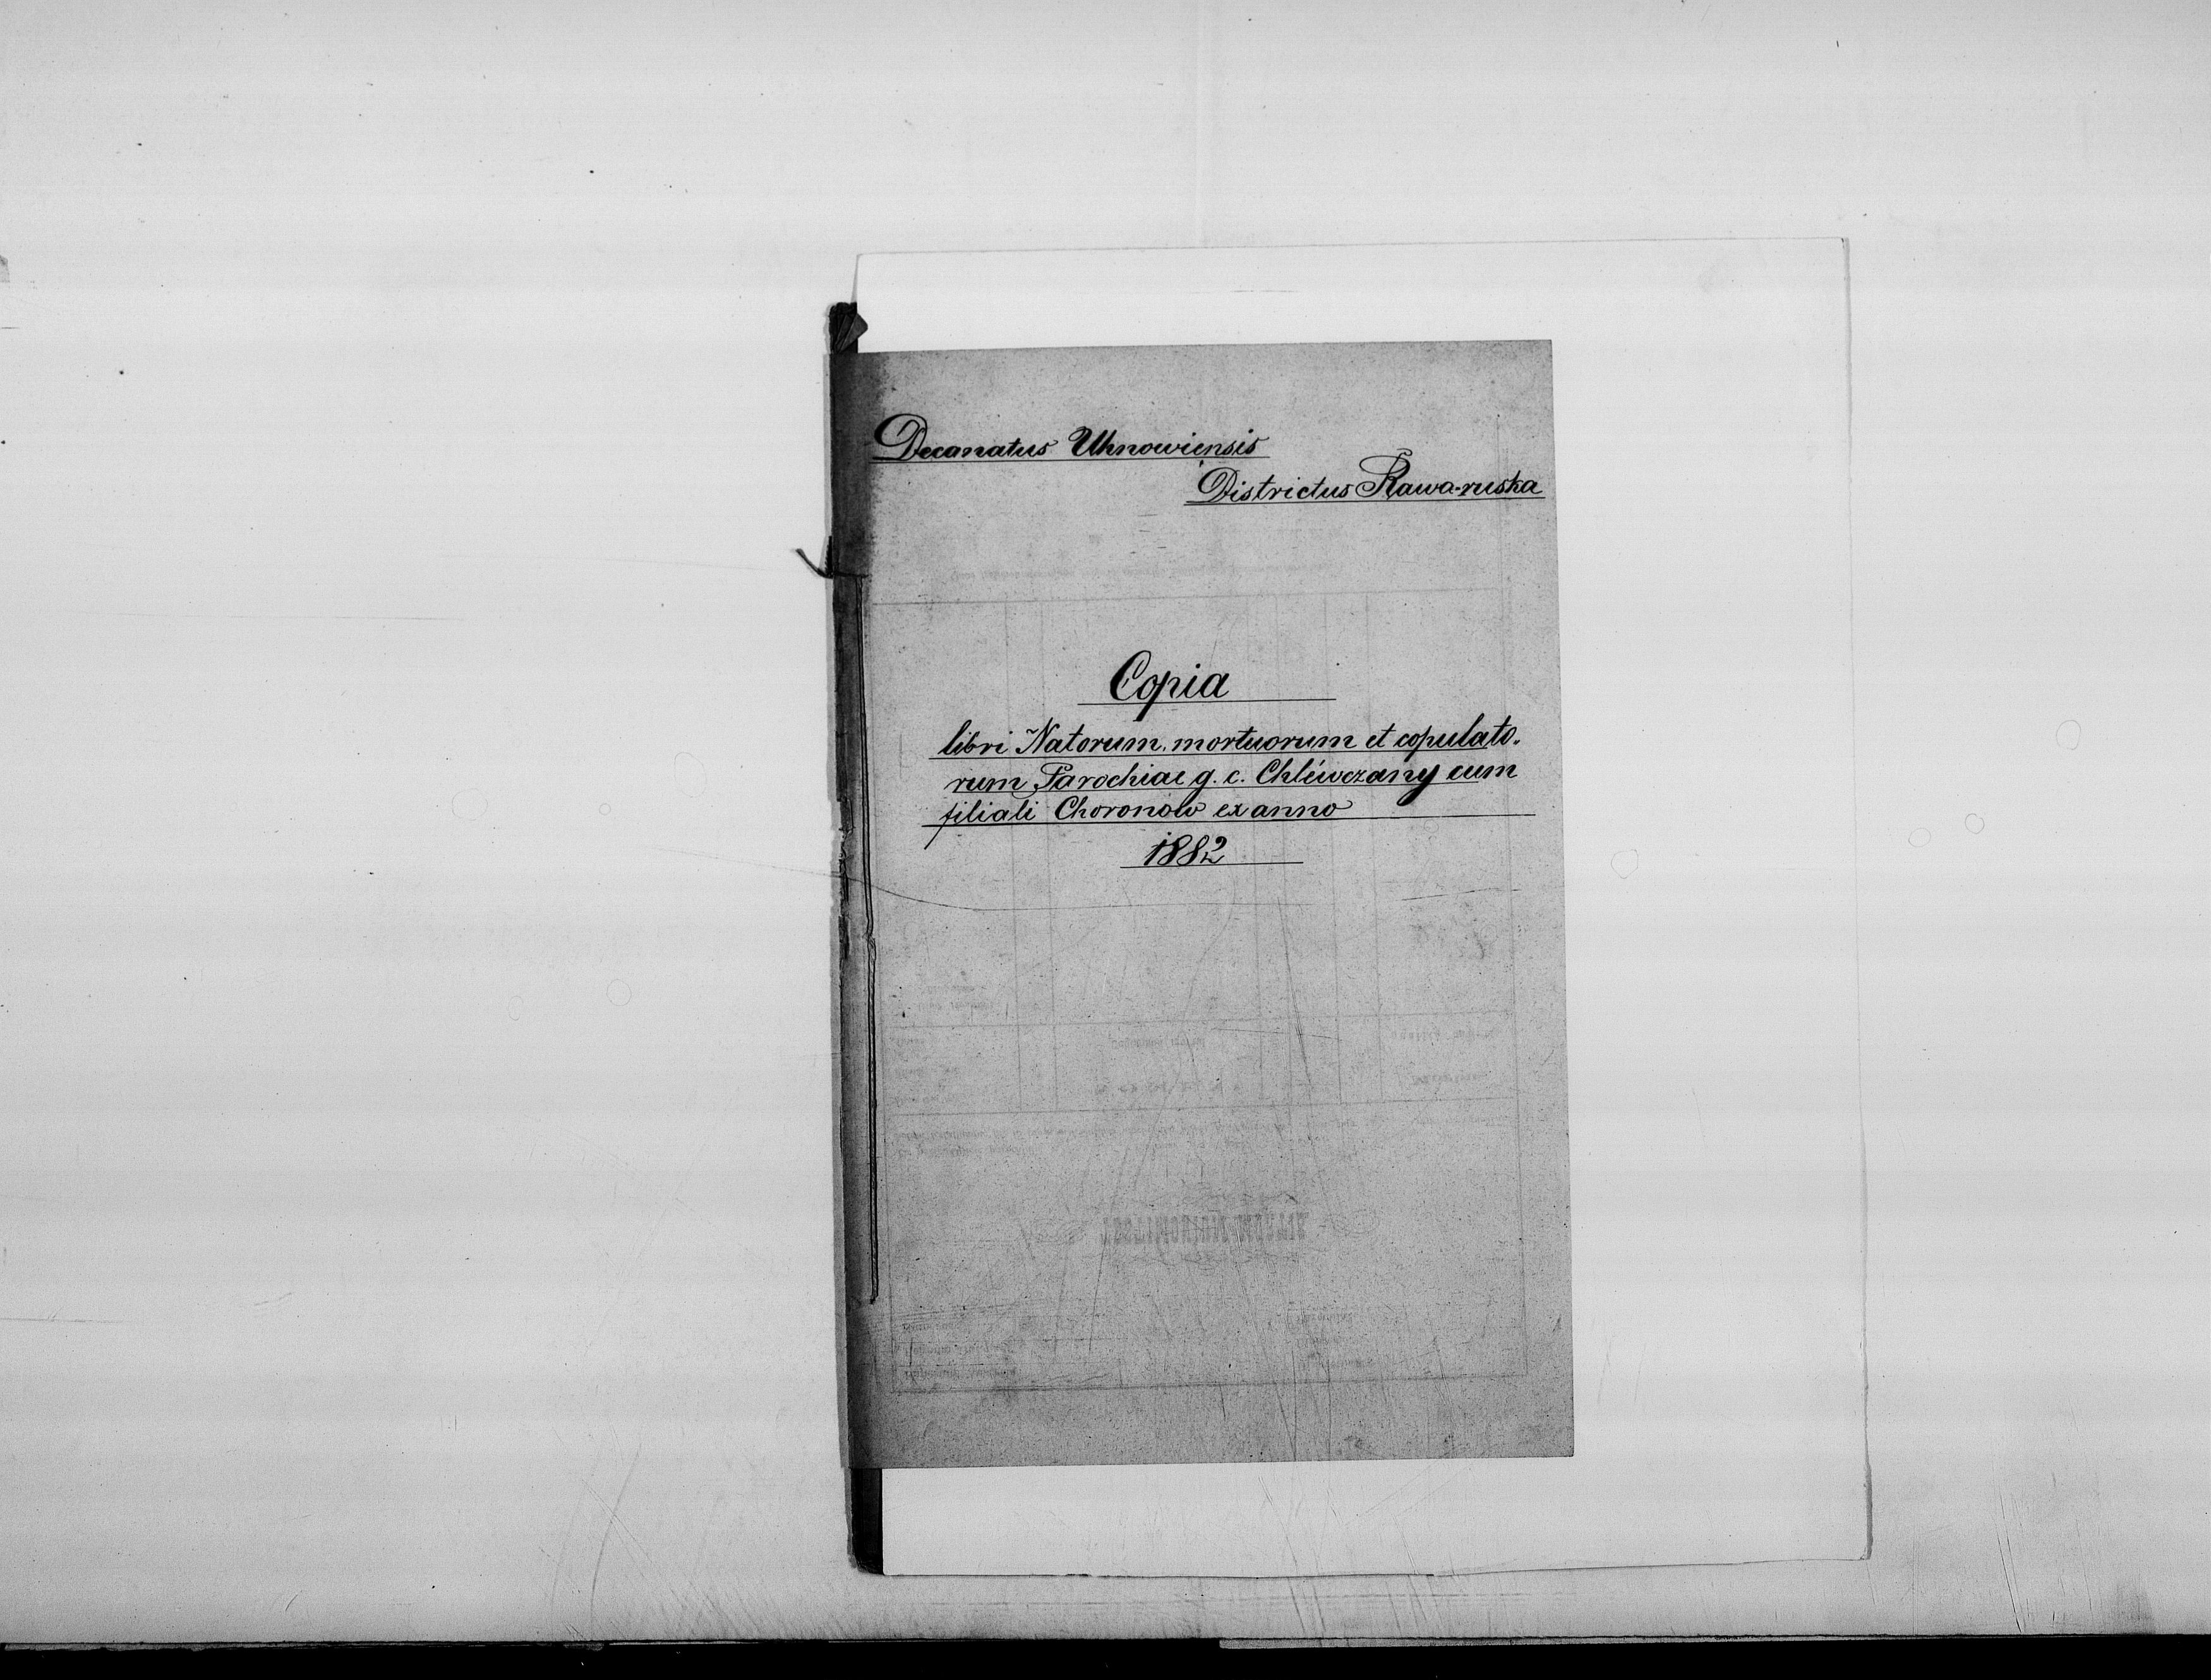 Decanatus Uhnowiensis
Districtus Rawa-ruska
Copia
libri Natorum, mortuorum et copulato-
rum Parochiae g. c. Chlewczany cum
filiali Choronow ex anno
1882